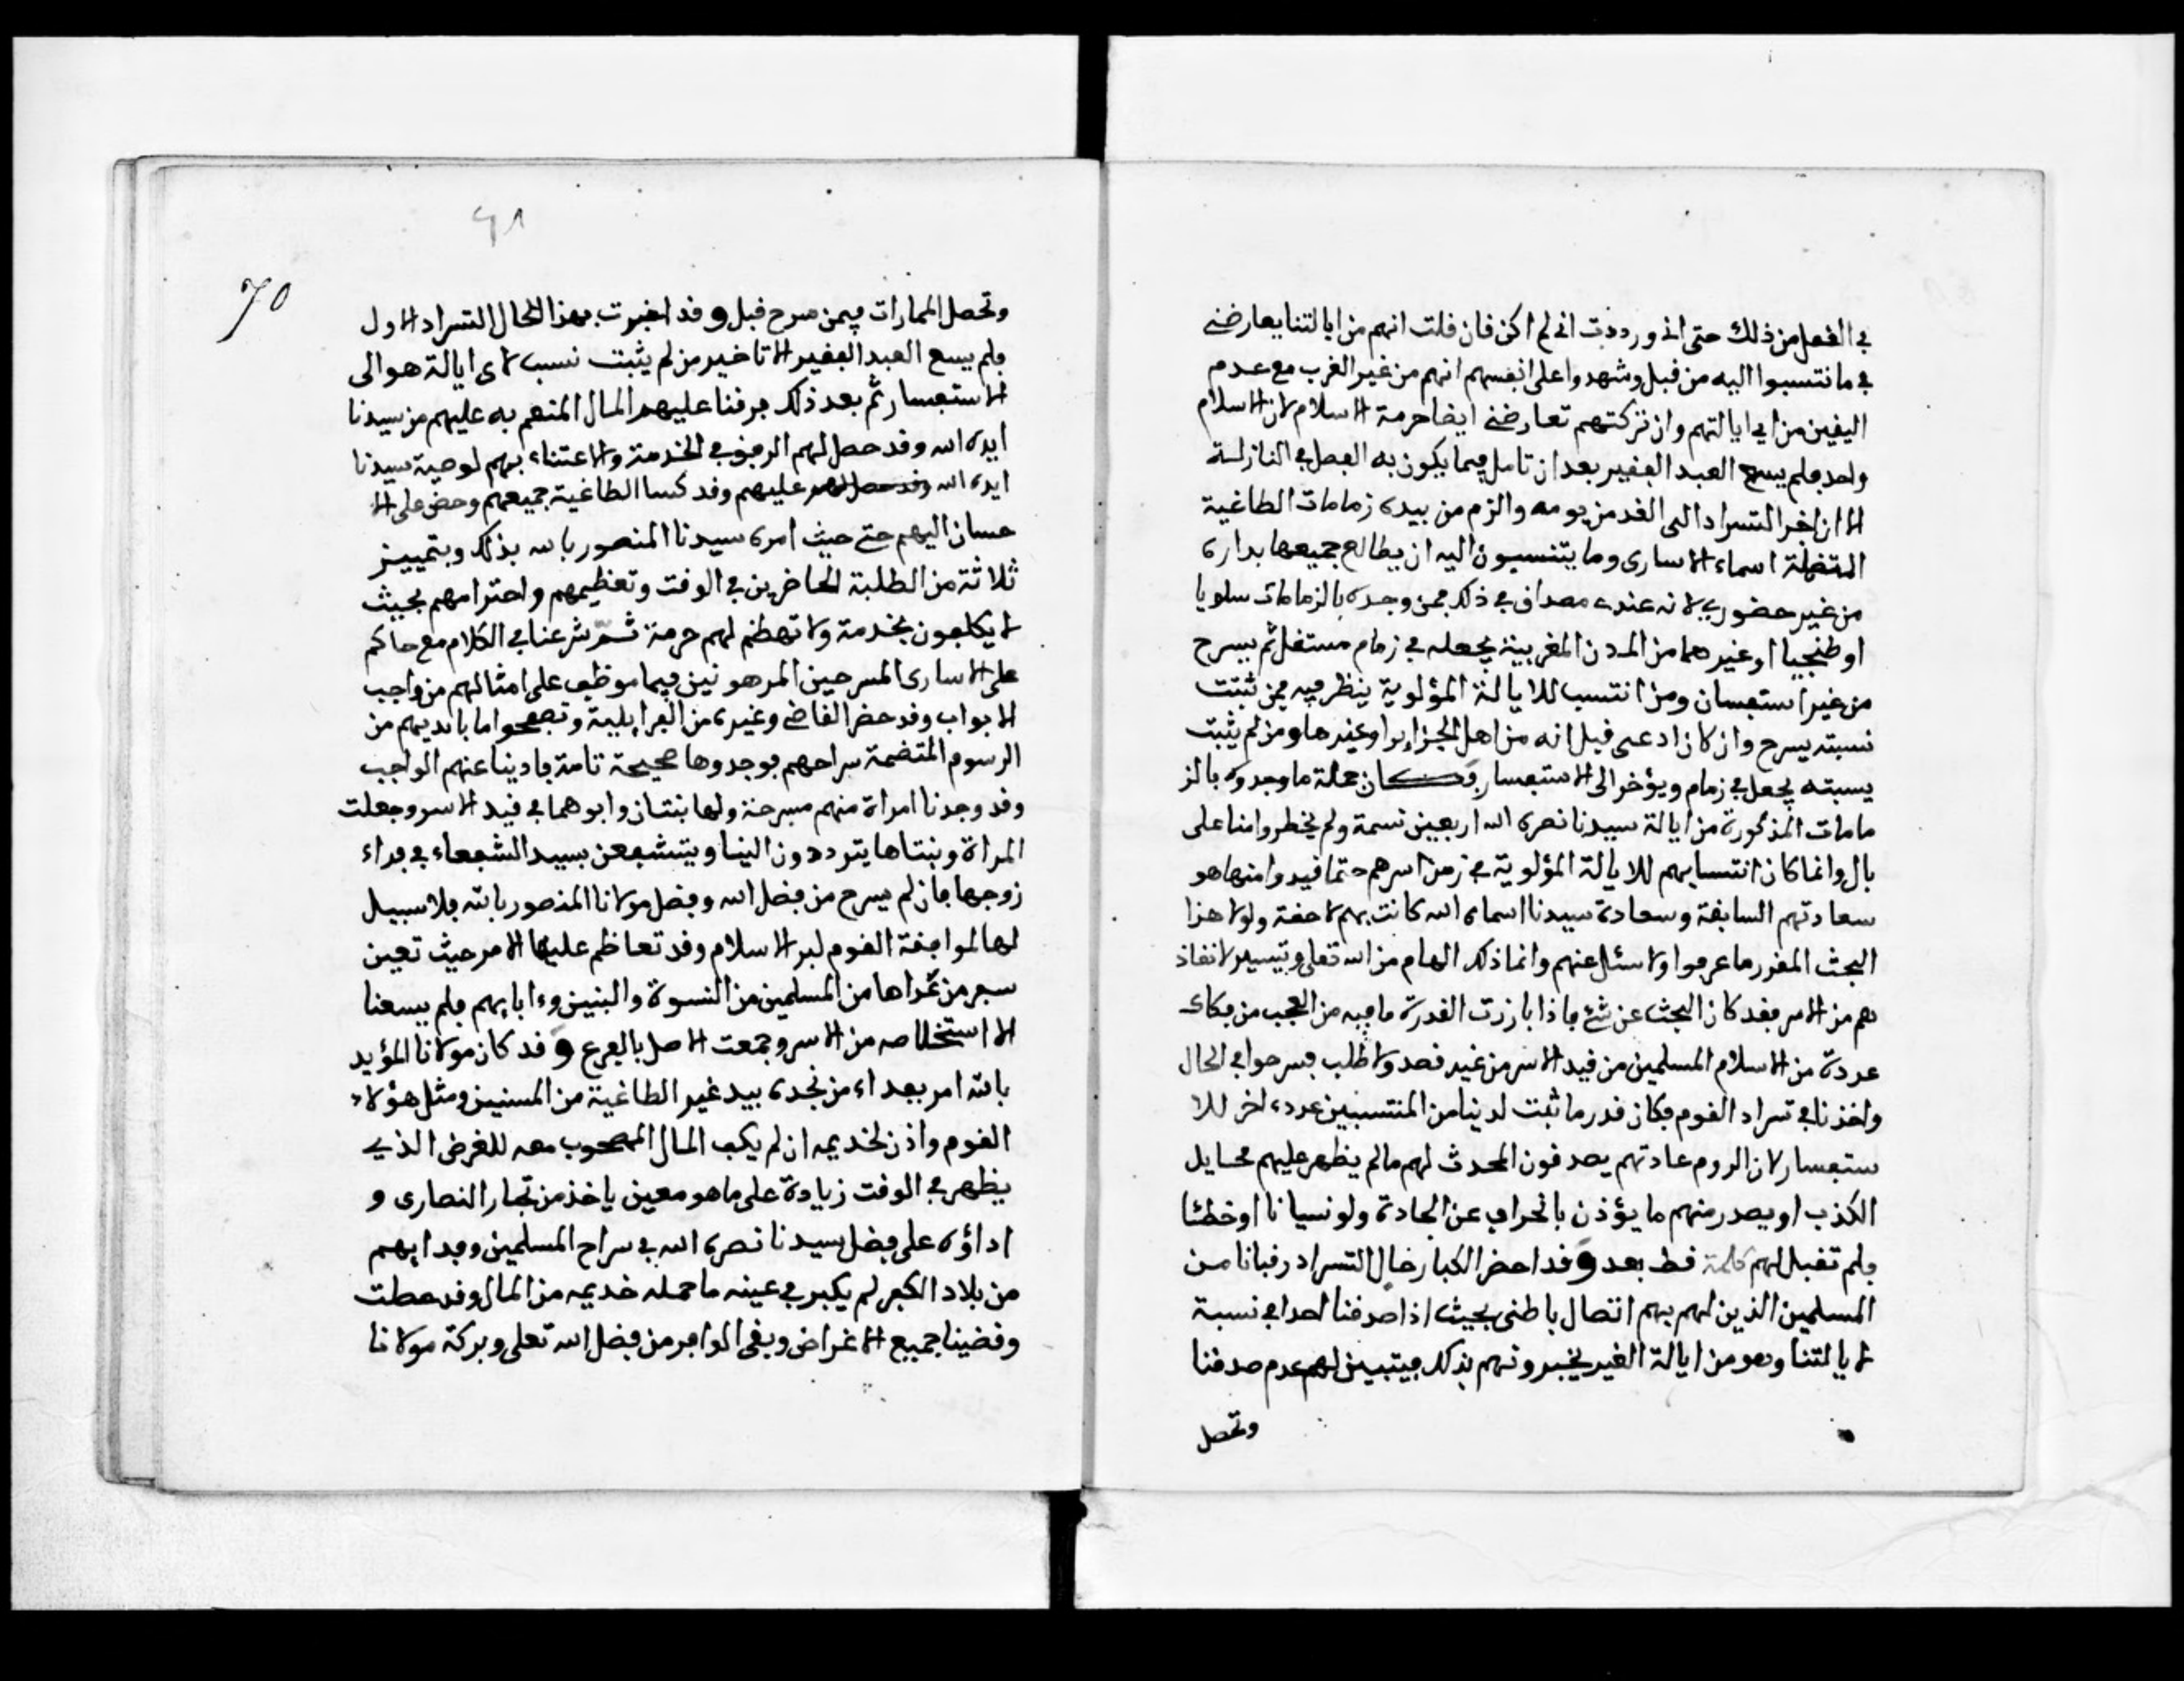 في الفعل من ذلك حتى اني وردذت اني لم اكن فان قلت انهم من ايالتنا يعارضني
في ما نتسبوا اليه من قبل وشهدوا على انفسهم انهم من غير الغرب مع عدم
اليقين من اي ايالتهم وان تركتهم تعارضني ايضا حرمة الاسلام لان الاسلام
واحد فلم يسع العبد الفقير بعد ان تامل فيما يكون به الفصل في النازلة
الا ان اخر التسراد الى الغد من يومه والزم من بيده زمامات الطاغية
المتضمنة اسماء الاسارى وما ينتسبون اليه ان يطالع جميعها بداره
من غير حضوري لانه عنده مصداق في ذلك فمن وجده بالزمامات سلويا
او طنجيا او غيرهما من المدن المغربية يجعله في زمام مستقل ثم يسرح
من غير استفسان ومن انتسب للايالة المؤلوية ينظر فيه فمن ثبتت
نسبته يسرح وان كان ادعى قبل انه من اهل الجزاير او غيرها ومن لم يثبت
يسبته يجعل في زمام ويؤخر الى الاستفسار وكان جملة ما وجدوه بالز
مامات المذكورة من ايالة سيدنا نصره الله اربعين نسمة ولم يخطروا منا على
بال وانما كان انتسابهم للايالة المؤلوية في زمن اسرهم حتما فيدوا منها هو
سعادتهم السابقة وسعادة سيدنا اسماه الله كانت بهم لاحقة ولولا هذا
البحث المقرر ما عرفوا ولا سئل عنهم وانما ذلك الهام من الله تعلى وتيسير لانفاذ
هم من الاسر فقد كان البحث عن شئ فاذا بارزت القدرة ما فيه من العجب من فكاك
عددة من الاسلام المسلمين من قيد الاسر من غير قصد ولا طلب فسرحوا في الحال
واخذنا في تسراد القوم فكان قدر ما ثبت لدينا من المنتسبين عدده اخر للا
ستفسار لان الروم عادتهم يصدقون المحدث لهم مالم يظهر عليهم مخايل
الكذب او يصدر منهم ما يؤذن بانحراف عن الجادة ولو نسيانا او خطئا
فلم تقبل لهم كلمة قط بعد وقد احضر الكبار خال التسراد رقبانا من
المسلمين الذين لهم بهم اتصال باطني بحيث اذا صدقنا احدا في نسبة
لايالتنا وهو من ايالة الغير يخبرونهم بذلك فيتبين لهم عدم صدقنا
وتحصل
٤٨
70
وتحصل الممارات فيمن سرح قبل وقد اخبرت بهذا الحال التسراد الاول
فلم يسع العبد الفقير الا تاخير من لم يثبت نسب لاى ايالة هو الى
الاستفسار ثم بعد ذلك فرقنا عليهم المال المنعم به عليهم من سيدنا
ايده الله وقد حصل لهم الرفق في الخدمة والاعتناء بهم لوصية سيدنا
ايده الله عليهم وقد كسا الطاغية جميعهم وحض على الا
حسان اليهم حتى حيث امره سيدنا المنصور بالله بذلك وبتمييز
ثلاثة من الطلبة الحاضرين في الوقت وتعظيمهم واحترامهم بحيث
لا يكلفون بخدمة ولا تهظم لهم حرمة ثم شرعنا في الكلام مع حاكم
على الاسارى المسرحين المرهونين فيما موظف على امثالهم من واجب
الابواب وقد حضر القاضي وغيره من الفرايلية وتصفحوا ما بايديهم من
الرسوم المتضمة سراحهم فوجدوها صحيحة تامة فادينا عنهم الواجب
وقد وجدنا امراة منهم مسرحة ولها بنتان وابوهما في قيد الاسر وجعلت
المراة وبنتاها يترددون الينا ويتشفعن بسيد الشفعاء في فداء
زوجها فان لم يسرح من فضل الله وفضل مولانا المنصور بالله فلا سبيل
لها لموافقة القوم لبر الاسلام وقد تعاظم عليها الامر حيث تعين
سفر من عداها من المسلمين من النسوة والبنين وءابايهم فلم يسعنا
الا استخلاصه من الاسر وجمعت الاصل بالفرع وقد كان مولانا المؤيد
بالله امر بفداء من نجده بيد غير الطاغية من المسنين ومثل هؤلاء
القوم واذن لخديمه ان لم يكف المال المصحوب معه للغرض الذي
يظهر في الوقت زيادة على ما هو معين ياخذ من تجار النصارى و
اداؤه على فضل سيدنا نصره الله في سراح المسلمين وفدايهم
من بلاد الكفر لم يكبر في عينه ما حمله خديمه من المال وقد حصلت
وقضينا جميع الاغراض وبقى الوافر من فضل الله تعلى وبركة مولانا